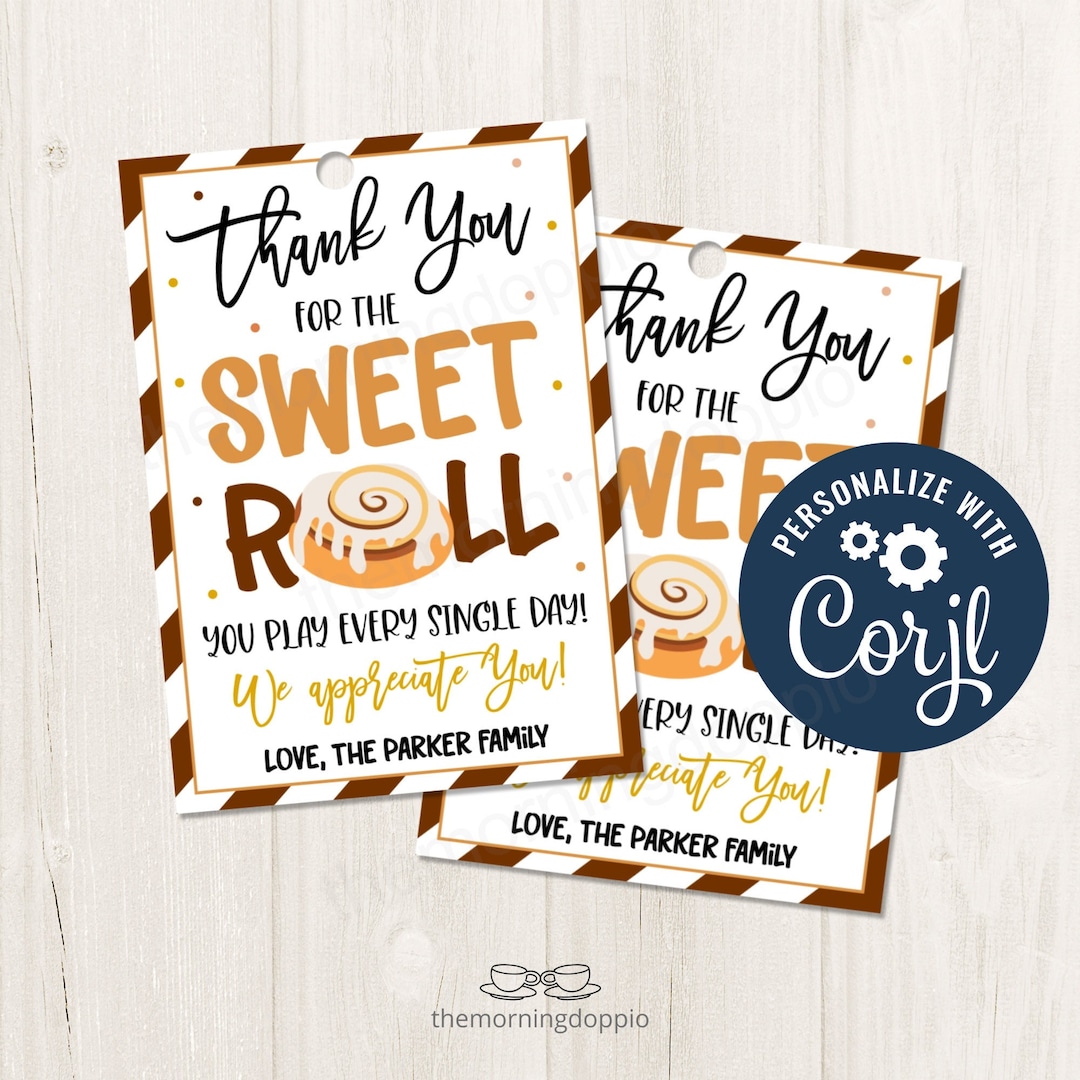 Thank You
FOR THE
SWEET
ROLL
YOU PLAY EVERY SINGLE DAY!
We appreciate You!
LOVE, THE PARKER FAMILY
Thank You
FOR THE
SWEET
VERY SINGLE DAY!
appreciate You!
LOVE, THE PARKER FAMILY
PERSONALIZE WITH
Corjl
themorningdoppio
themorningdoppio